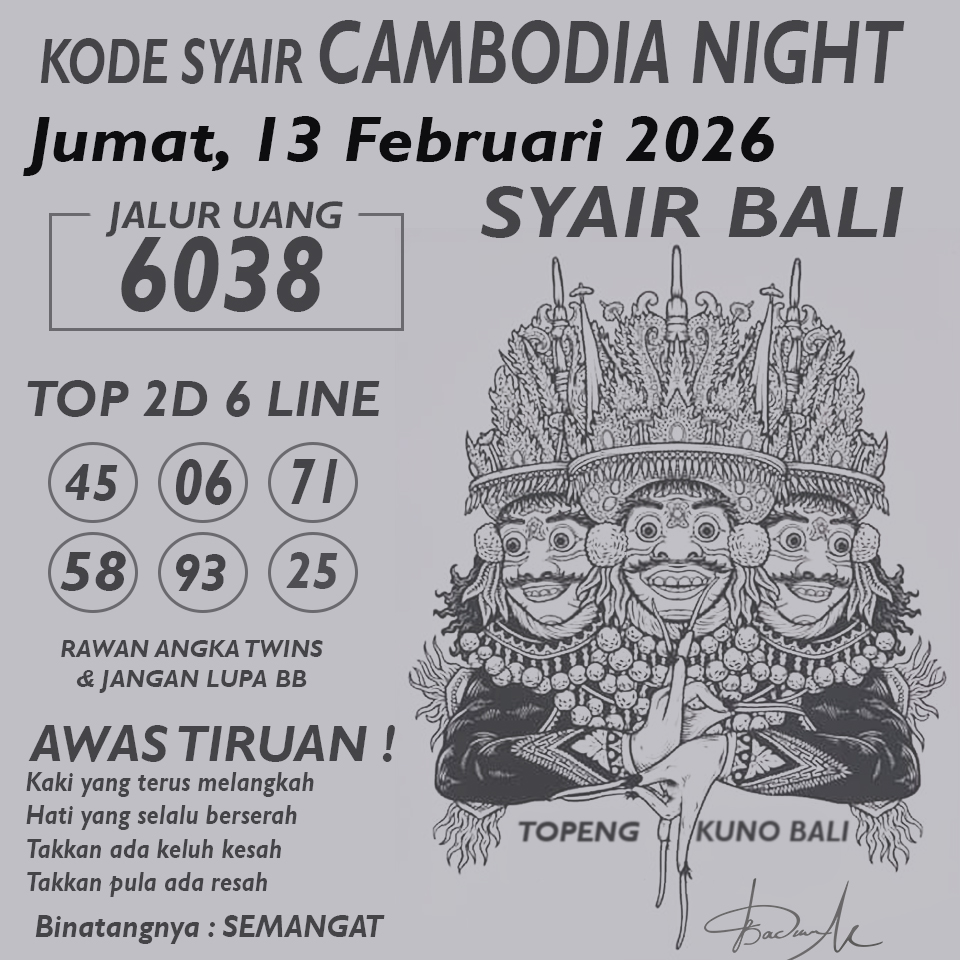 KODE SYAIR CAMBODIA NIGHT
Jumat, 13 Februari 2026
SYAIR BALI
JALUR UANG
6038
TOP 2D 6 LINE
45 06 71
58 93 25
RAWAN ANGKA TWINS
& JANGAN LUPA BB
AWAS TIRUAN !
Kaki yang terus melangkah
Hati yang selalu berserah
Takkan ada keluh kesah
Takkan pula ada resah
Binatangnya : SEMANGAT
TOPENG KUNO BALI